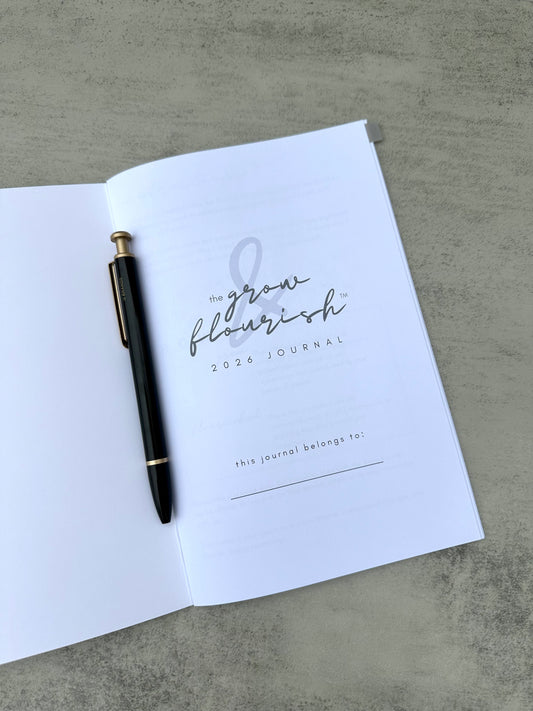 the grow &
flourish™
2026 JOURNAL
this journal belongs to: